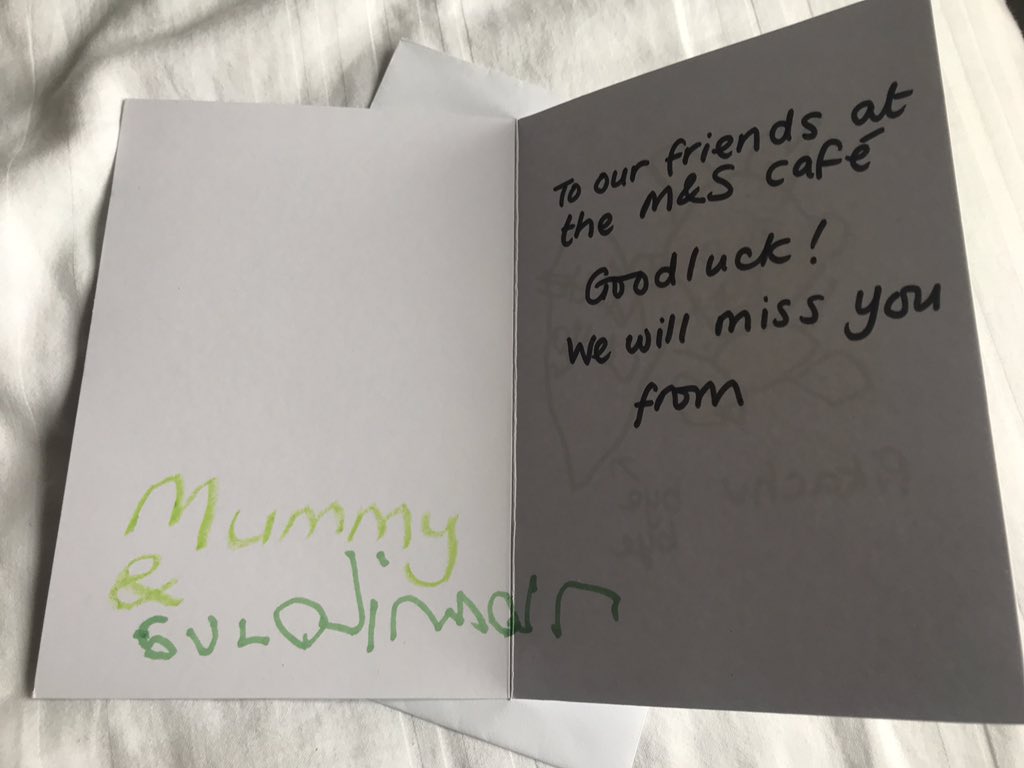 To our friends at
the M&S café
Good luck!
We will miss you
from
Mummy
&